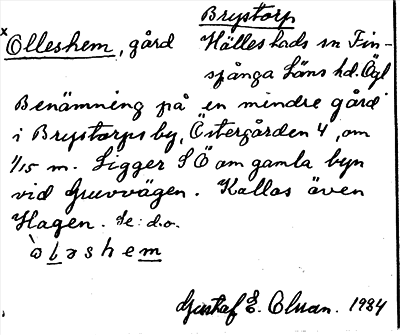 Brystorp
x Olleshem, gård Hällestads sn Fin-
spånga Läns hd. Ögl
Benämning på en mindre gård
i Brystorps by, Östergården 4, om
1/15 m. Ligger SÖ om gamla byn
vid Gruvvägen. Kallas även
Hagen. Se: d.o.
`ɷləshem
Gustaf E. Olsson. 1984